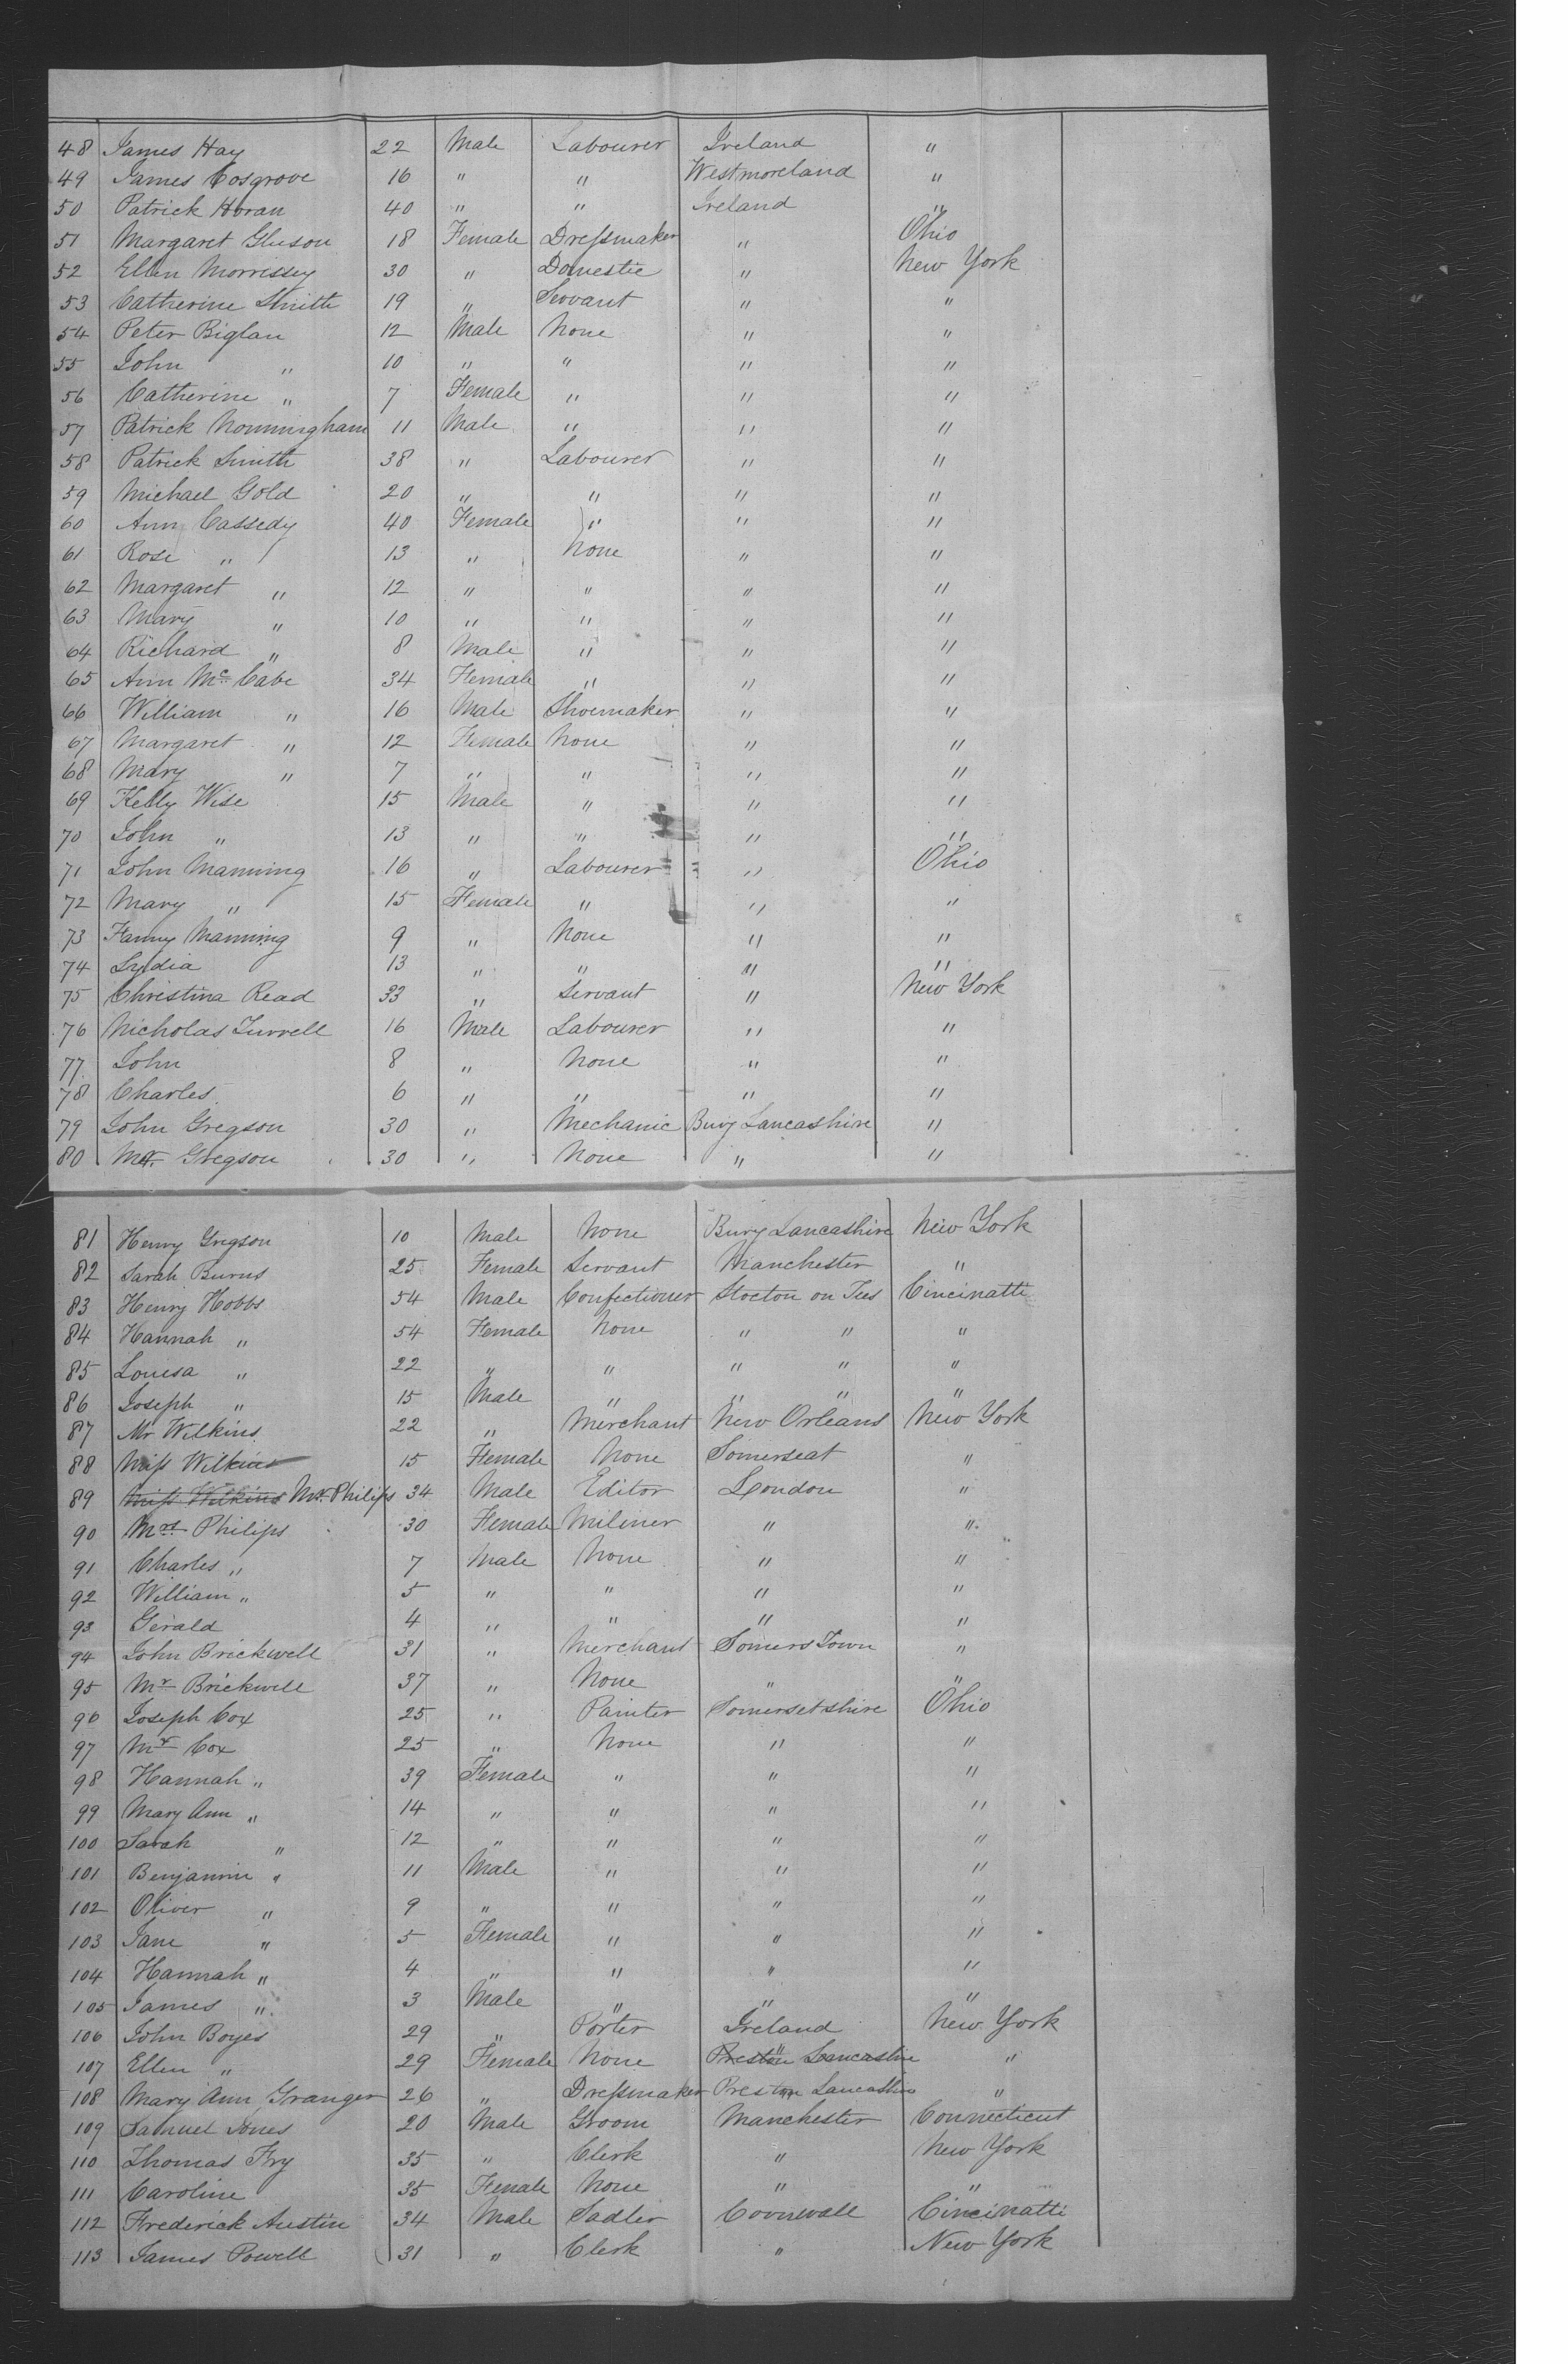 48 James Hay 22 Male Labourer Ireland "
49 James Cosgrove 16 " " Westmoreland "
50 Patrick Horan 40 " " Ireland "
51 Margaret Gleeson 18 Female Dressmaker " Ohio
52 Ellen Morrissey 30 " Domestic " New York
53 Catherine Smith 19 " Servant " "
54 Peter Biglan 12 Male None " "
55 John " 10 " " " "
56 Catherine " 7 Female " " "
57 Patrick Nonningham 11 Male " " "
58 Patrick Smith 38 " Labourer " "
59 Michael Gold 20 " " " "
60 Ann Cassedy 40 Female " " "
61 Rose " 13 " None " "
62 Margaret " 12 " " " "
63 Mary " 10 " " " "
64 Richard " 8 Male " " "
65 Ann McCabe 34 Female " " "
66 William " 16 Male Shoemaker " "
67 Margaret " 12 Female None " "
68 Mary " 7 " " " "
69 Kelly Wise 15 Male " " "
70 John " 13 " " " "
71 John Manning 16 " Labourer " Ohio
72 Mary " 15 Female " " "
73 Fanny Manning 9 " None " "
74 Lydia 13 " " " "
75 Christina Read 33 " Servant " New York
76 Nicholas Turrell 16 Male Labourer " "
77 John 8 " None " "
78 Charles 6 " " " "
79 John Gregson 30 " Mechanic Bury Lancashire "
80 Mr. Gregson 30 " None " "
81 Henry Gregson 10 Male None Bury Lancashire New York
82 Sarah Burns 25 Female Servant Manchester "
83 Henry Hobbs 54 Male Confectioner Stocton on Tees Cincinatti
84 Hannah " 54 Female None " " "
85 Louesa " 22 " " " " "
86 Joseph " 15 Male " " " "
87 Mr Wilkins 22 " Merchant New Orleans New York
88 Miss Wilkins 15 Female None Somerseat "
89 Miss Wilkins Mr. Philips 34 Male Editor London "
90 Mrs Philips 30 Female Miliner " "
91 Charles " 7 Male None " "
92 William " 5 " " " "
93 Gerald 4 " " " "
94 John Brickwell 31 " Merchant Somers Town "
95 Mr Brickwell 37 " None " "
96 Joseph Cox 25 " Painter Somersetshire Ohio
97 Mr Cox 25 " None " "
98 Hannah " 39 Female " " "
99 Mary Ann " 14 " " " "
100 Sarah " 12 " " " "
101 Benjamin " 11 Male " " "
102 Oliver " 9 " " " "
103 Jane " 5 Female " " "
104 Hannah " 4 " " " "
105 James " 3 Male " " "
106 John Boyes 29 " Porter Ireland New York
107 Ellen " 29 Female None Preston Lancashire " "
108 Mary Ann Granger 26 " Dressmaker Preston Lancashire "
109 Samuel Jones 20 Male Groom Manchester Connecticut
110 Thomas Fry 35 " Clerk " New York
111 Caroline 35 Female None " "
112 Frederick Austin 34 Male Sadler Cornwall Cincinatti
113 James Powell 31 " Clerk " New York